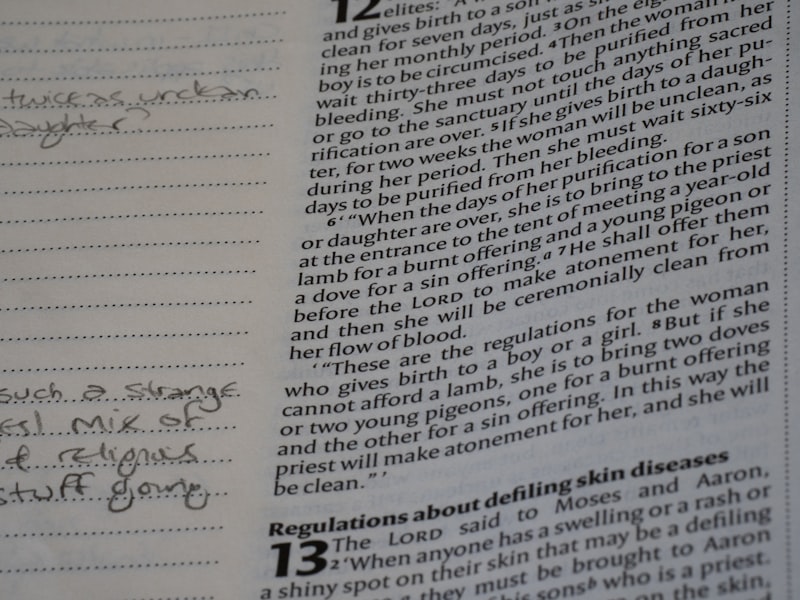 twice as unclean
daughter?
such a strange
mix of
& religious
stuff going
12 elites: "A
and gives birth to a son
clean for seven days, just as
ing her monthly period. 3On the
boy is to be circumcised. 4Then the woman
wait thirty-three days to be purified from her
bleeding. She must not touch anything sacred
or go to the sanctuary until the days of her pu-
rification are over. 5If she gives birth to a daugh-
ter, for two weeks the woman will be unclean, as
during her period. Then she must wait sixty-six
days to be purified from her bleeding.
6‘“When the days of her purification for a son
or daughter are over, she is to bring to the priest
at the entrance to the tent of meeting a year-old
lamb for a burnt offering and a young pigeon or
a dove for a sin offering.a 7He shall offer them
before the LORD to make atonement for her,
and then she will be ceremonially clean from
her flow of blood.
‘“These are the regulations for the woman
who gives birth to a boy or a girl. 8But if she
cannot afford a lamb, she is to bring two doves
or two young pigeons, one for a burnt offering
and the other for a sin offering. In this way the
priest will make atonement for her, and she will
be clean.”’
Regulations about defiling skin diseases
13 The LORD said to Moses and Aaron,
2‘When anyone has a swelling or a rash or
a shiny spot on their skin that may be a defiling
they must be brought to Aaron
his sonsb who is a priest.
on the skin,